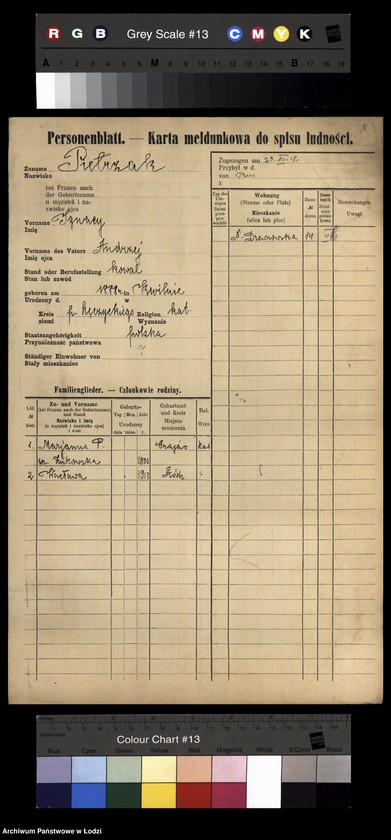 R G B Grey Scale #13 C M Y K
A 1 2 3 4 5 6 M 8 9 10 11 12 13 14 15 B 17 18 19
1
Personenblatt. — Karta meldunkowa do spisu ludności.
Zuname Pietrzak
Nazwisko
bei Frauen auch
der Geburtsname
u mężatek i na-
zwisko ojca
Vorname Ignacy
Imię
Vorname des Vaters Andrzej
Imię ojca
Stand oder Berufsstellung kowal
Stan lub zawód
geboren am 1888 in Kwilnie
Urodzony d. w
Kreis p. Łęczyckiego Religion kat.
ziemi Wyznanie
Staatsangehörigkeit polska
Przynależność państwowa
Ständiger Einwohner von ?
Stały mieszkaniec
Zugezogen am
Przybył w d.
von
z
Tag des Um-
zuges
Dzień
prze-
prowadzki
Wohnung
(Strasse oder Platz)
Mieszkanie
(ulica lub plac)
Haus
№
domu
Bemerkungen
Uwagi
N. Drewnowska 14
Familienglieder. — Członkowie rodziny.
Lfd.
№
bież.
Zu- und Vorname
(bei Frauen auch der Geburtsname)
und Stand
Nazwisko i imię
(u mężatek i nazwisko ojca)
i stan
Geburts-
Tag | Mon. | Jahr
Urodzony
dnia | mies. | r.
Geburtsort
und Kreis
Miejsce
urodzenia
Rel.
Wyzn.
1. Marjanna P. kat
z. Żukowska 1890
2. Wiesława Łódź "
Colour Chart #13
Blue Cyan Green Yellow Red Magenta White 3/Color Black
Archiwum Państwowe w Łodzi